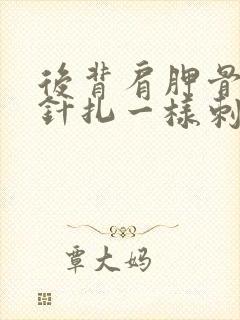 後背肩胛骨
針扎一樣刺
覃大妈